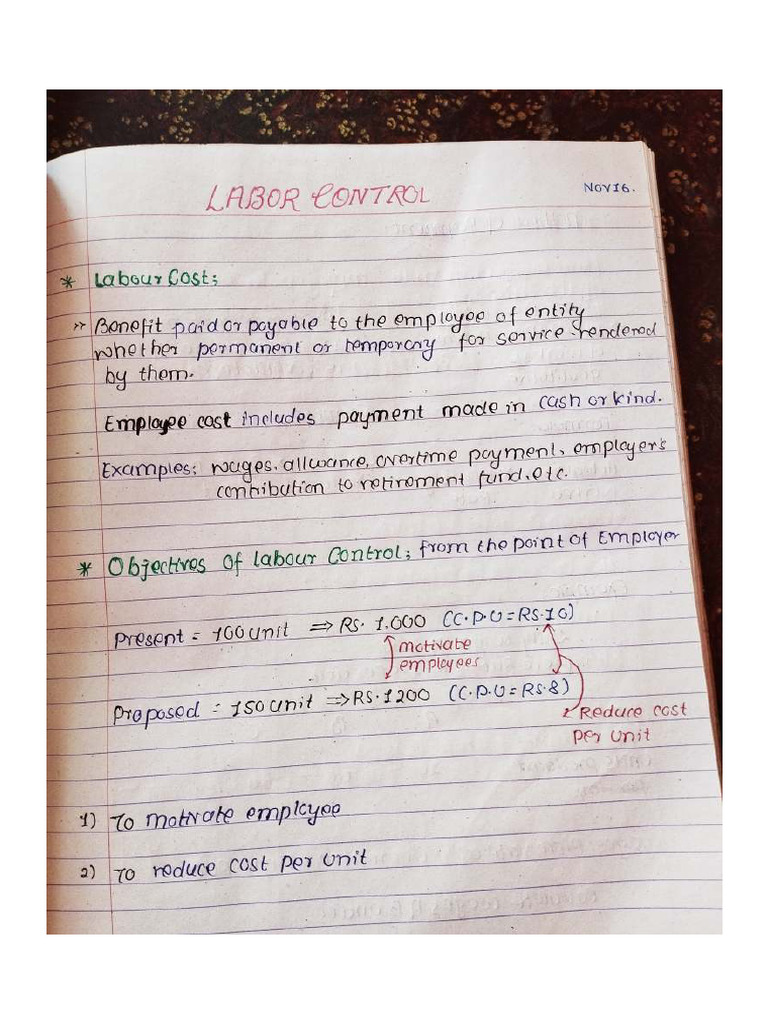 LABOR CONTROL
NOV16.
* Labour Cost:
>> Benefit paid or payable to the employee of entity
whether permanent or temporary for service rendered
by them.
Employee cost includes payment made in cash or kind.
Examples: wages, allwance, overtime payment, employer's
contribution to retirement fund, etc.
* Objectives of Labour Control: from the point of Employer
Present = 100 unit ⇒ RS. 1,000 (C.P.U = RS.10)
motivate
employees
Proposed = 150 unit ⇒ RS.1200 (C.P.U = RS.8)
Reduce cost
per unit
1) To motivate employee
2) To reduce cost per unit